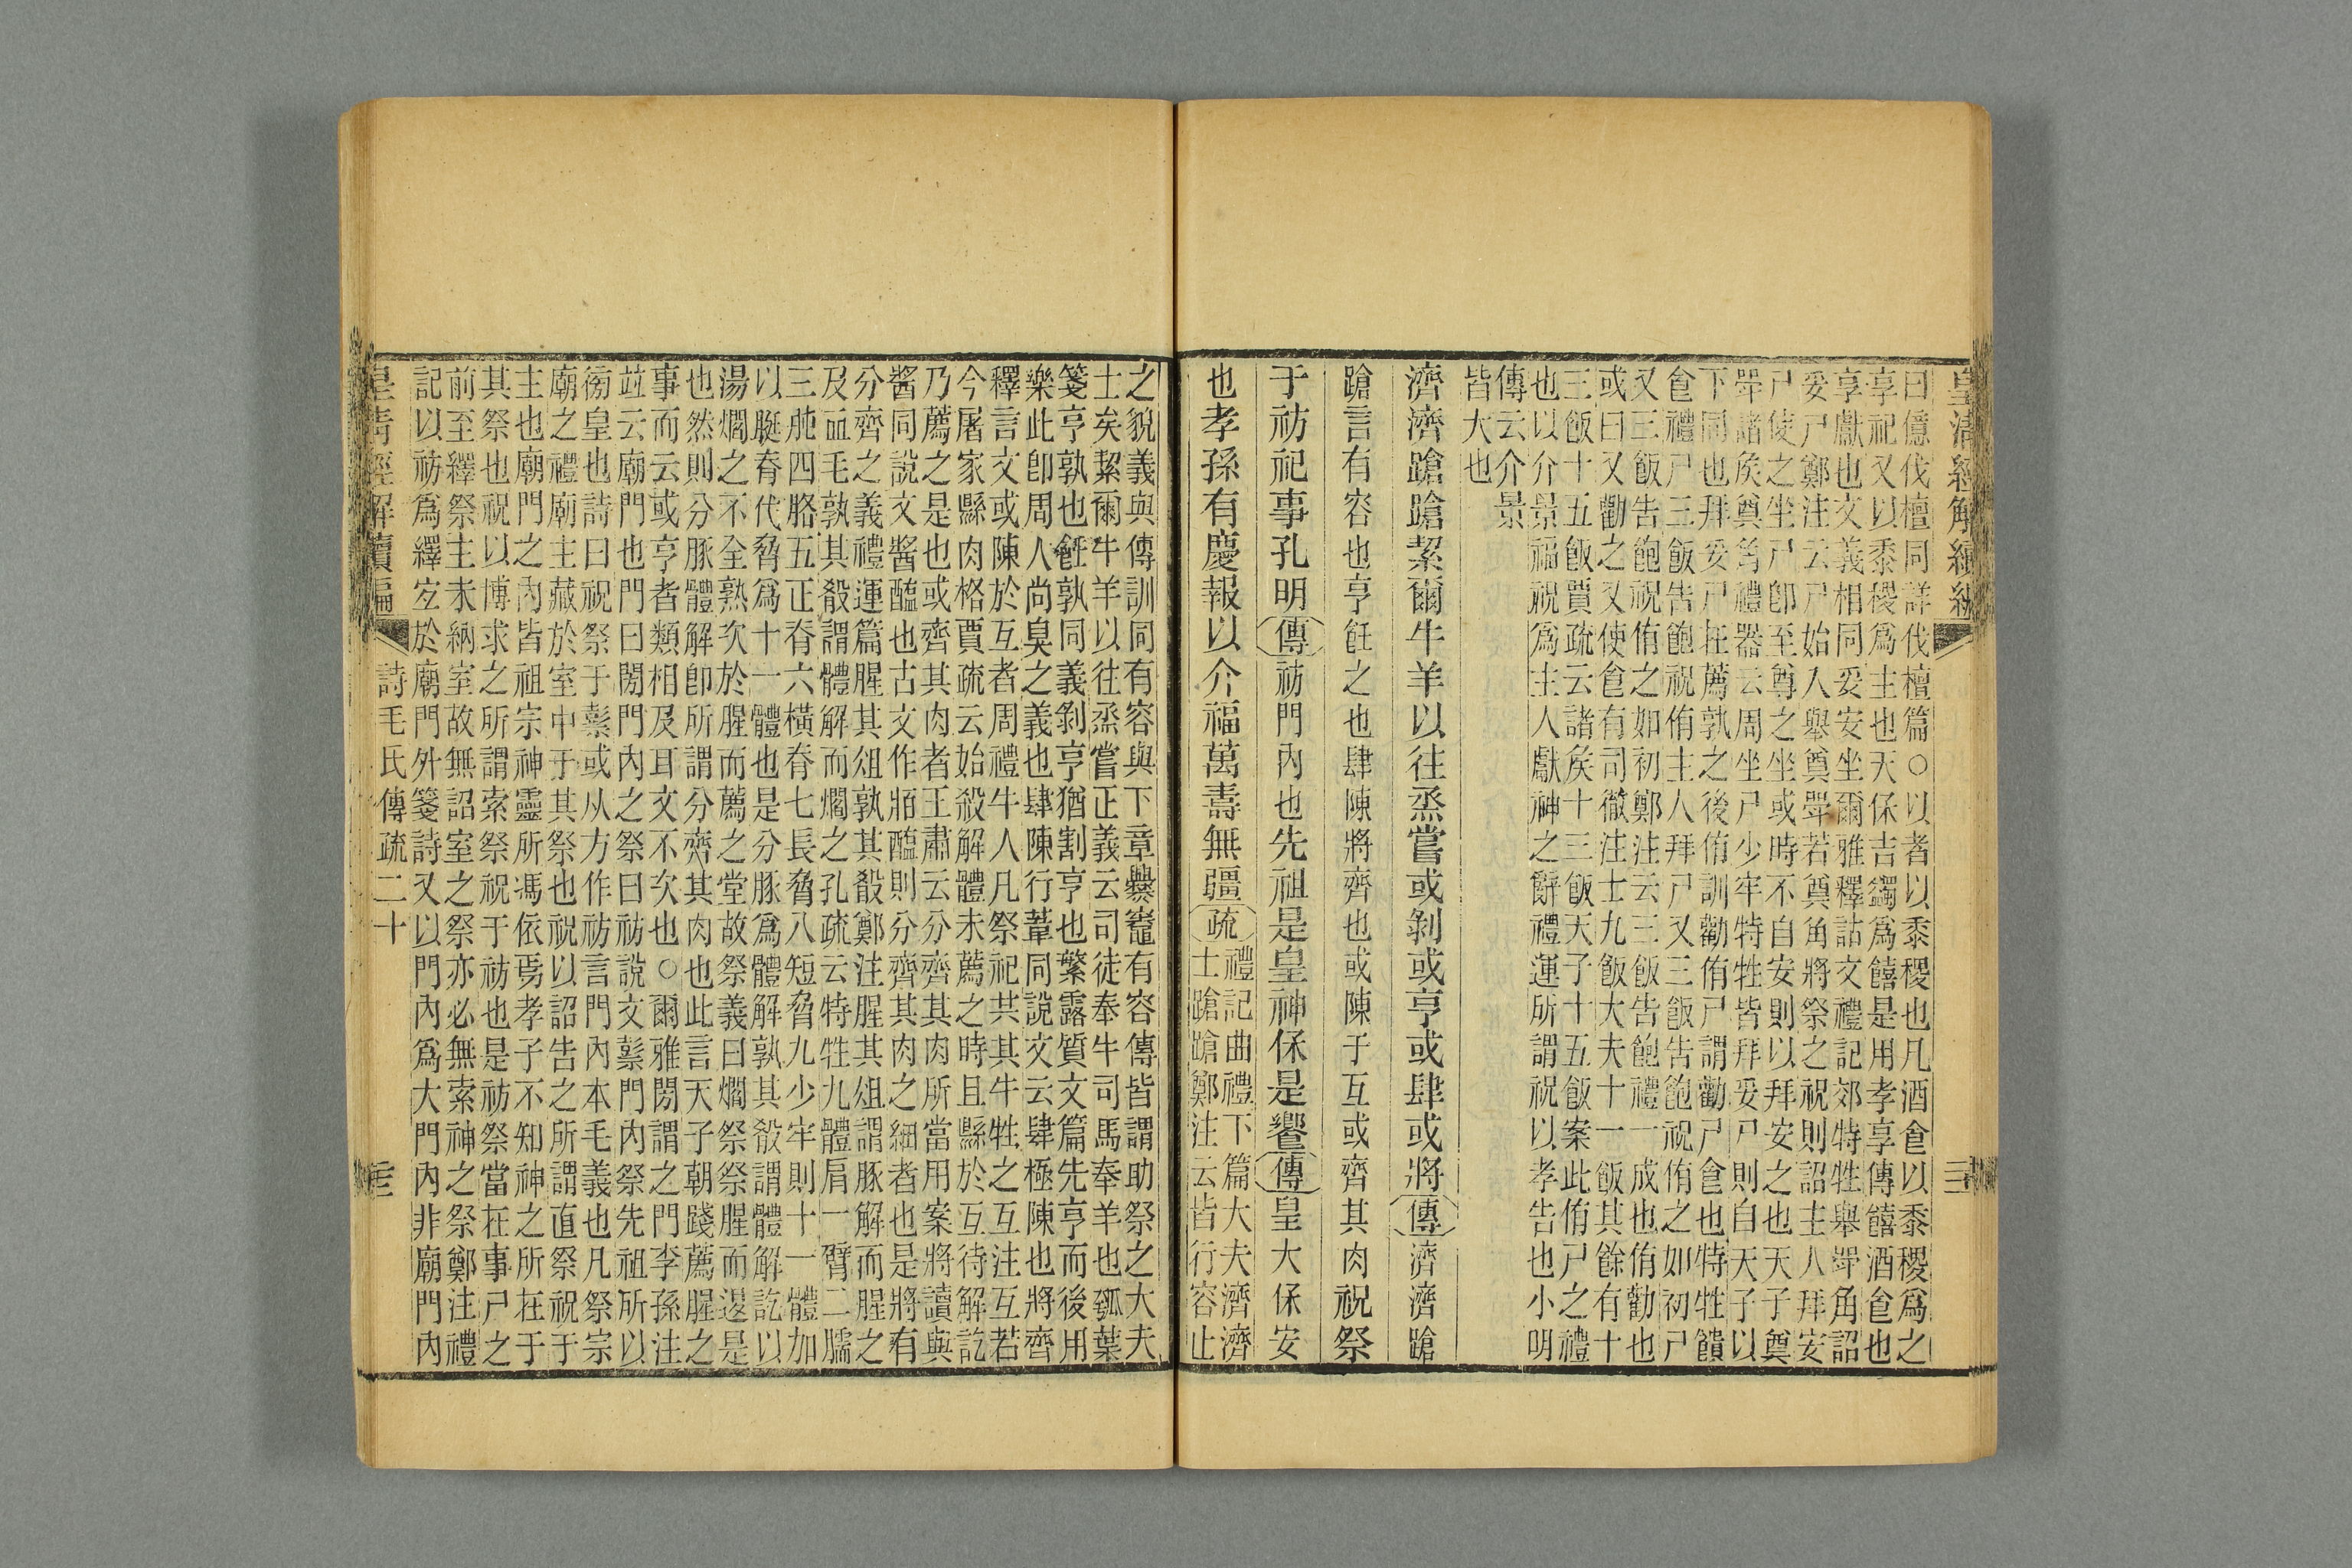 皇清經解續編
三
曰億伐檀同詳伐檀篇○以者以黍稷也凡酒食以黍稷爲之
享祀又以黍稷爲主也天保吉蠲爲饎是用孝享傳饎酒食也
享獻也文義相同妥安坐爾雅釋詁文禮記郊特牲舉斝角詔
妥尸鄭注云尸始入舉奠斝若奠角將祭之祝則詔主人拜安
尸使之坐尸卽至尊之坐或時不自安則以拜安之也天子奠
斝諸矦奠角禮器云周坐尸少牢特牲皆拜妥尸則自天子以
下同也拜妥尸在薦孰之後侑訓勸侑尸謂勸尸食也特牲饋
食禮尸三飯告飽祝侑主人拜尸又三飯告飽祝侑之如初尸
又三飯告飽祝侑之如初鄭注云三飯告飽禮一成也侑勸也
或曰又勸之又使食有司徹注士九飯大夫十一飯其餘有十
三飯十五飯賈疏云諸矦十三飯天子十五飯案此侑尸之禮
也以介景福祝爲主人獻神之辭禮運所謂祝以孝告也小明
傳云介景
皆大也
濟濟蹌蹌絜爾牛羊以往烝嘗或剝或亨或肆或將傳濟濟蹌
蹌言有容也亨飪之也肆陳將齊也或陳于互或齊其肉祝祭
于祊祀事孔明傳祊門內也先祖是皇神保是饗傳皇大保安
也孝孫有慶報以介福萬壽無疆疏禮記曲禮下篇大夫濟濟
士蹌蹌鄭注云皆行容止
之貌義與傳訓同有容與下章爨竈有容傳皆謂助祭之大夫
士矣絜爾牛羊以往烝嘗正義云司徒奉牛司馬奉羊也瓠葉
箋亨孰也飪孰同義剝亨猶割亨也繁露質文篇先亨而後用
樂此卽周人尚臭之義也肆陳行葦同說文云肆極陳也將齊
釋言文或陳於互者周禮牛人凡祭祀共其牛牲之互注互若
今屠家縣肉格賈疏云始殺解體未薦之時且縣於互待解訖
乃薦之是也或齊其肉者王肅云分齊其肉所當用案將讀與
醬同說文醬醢也古文作𤖕醢則分齊其肉之細者也是將有
分齊之義禮運篇腥其俎孰其殽鄭注腥其俎謂豚解而腥之
及血毛孰其殽謂體解而爓之孔疏云特牲九體肩一臂二臑
三肫四胳五正脊六橫脊七長脅八短脅九少牢則十一體加
以脡脊代脅爲十一體也是分豚爲體解孰其殽謂體解訖以
湯爓之不全熟次於腥而薦之堂故祭義曰爓祭祭腥而退是
也然則分豚體解卽所謂分齊其肉也此言天子朝踐薦腥之
事而云或亨者類相及耳文不次也○爾雅閍謂之門李孫注
竝云廟門也門曰閍門內之祭曰祊說文䰃門內祭先祖所以
徬皇也詩曰祝祭于䰃或从方作祊言門內本毛義也凡祭宗
廟之禮廟主藏於室中于其祭也祝以詔告之所謂直祭祝于
主也廟門之內皆祖宗神靈所馮依焉孝子不知神之所在于
其祭也祝以博求之所謂索祭祝于祊也是祊祭當在事尸之
前至繹祭主未納室故無詔室之祭亦必無索神之祭鄭注禮
記以祊爲繹㝎於廟門外箋詩又以門內爲大門內非廟門內
皇清經解續編
詩毛氏傳疏二十